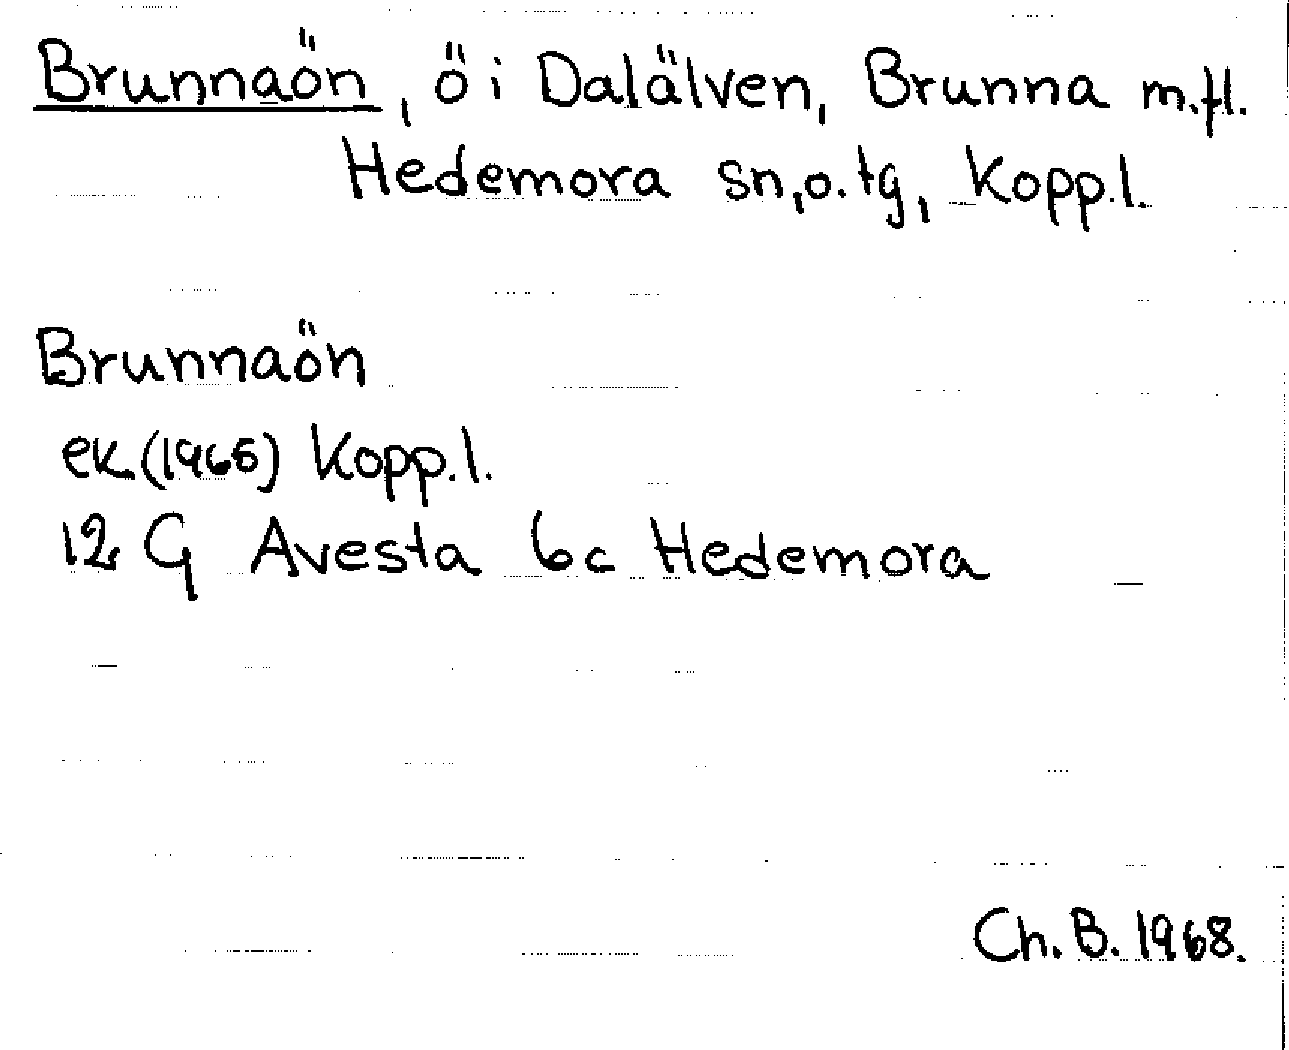 Brunnaön, ö i Dalälven, Brunna m.fl.
Hedemora sn, o. tg, Kopp.l.
Brunnaön
ek (1965) Kopp.l.
12 G Avesta 6c Hedemora
Ch. B. 1968.